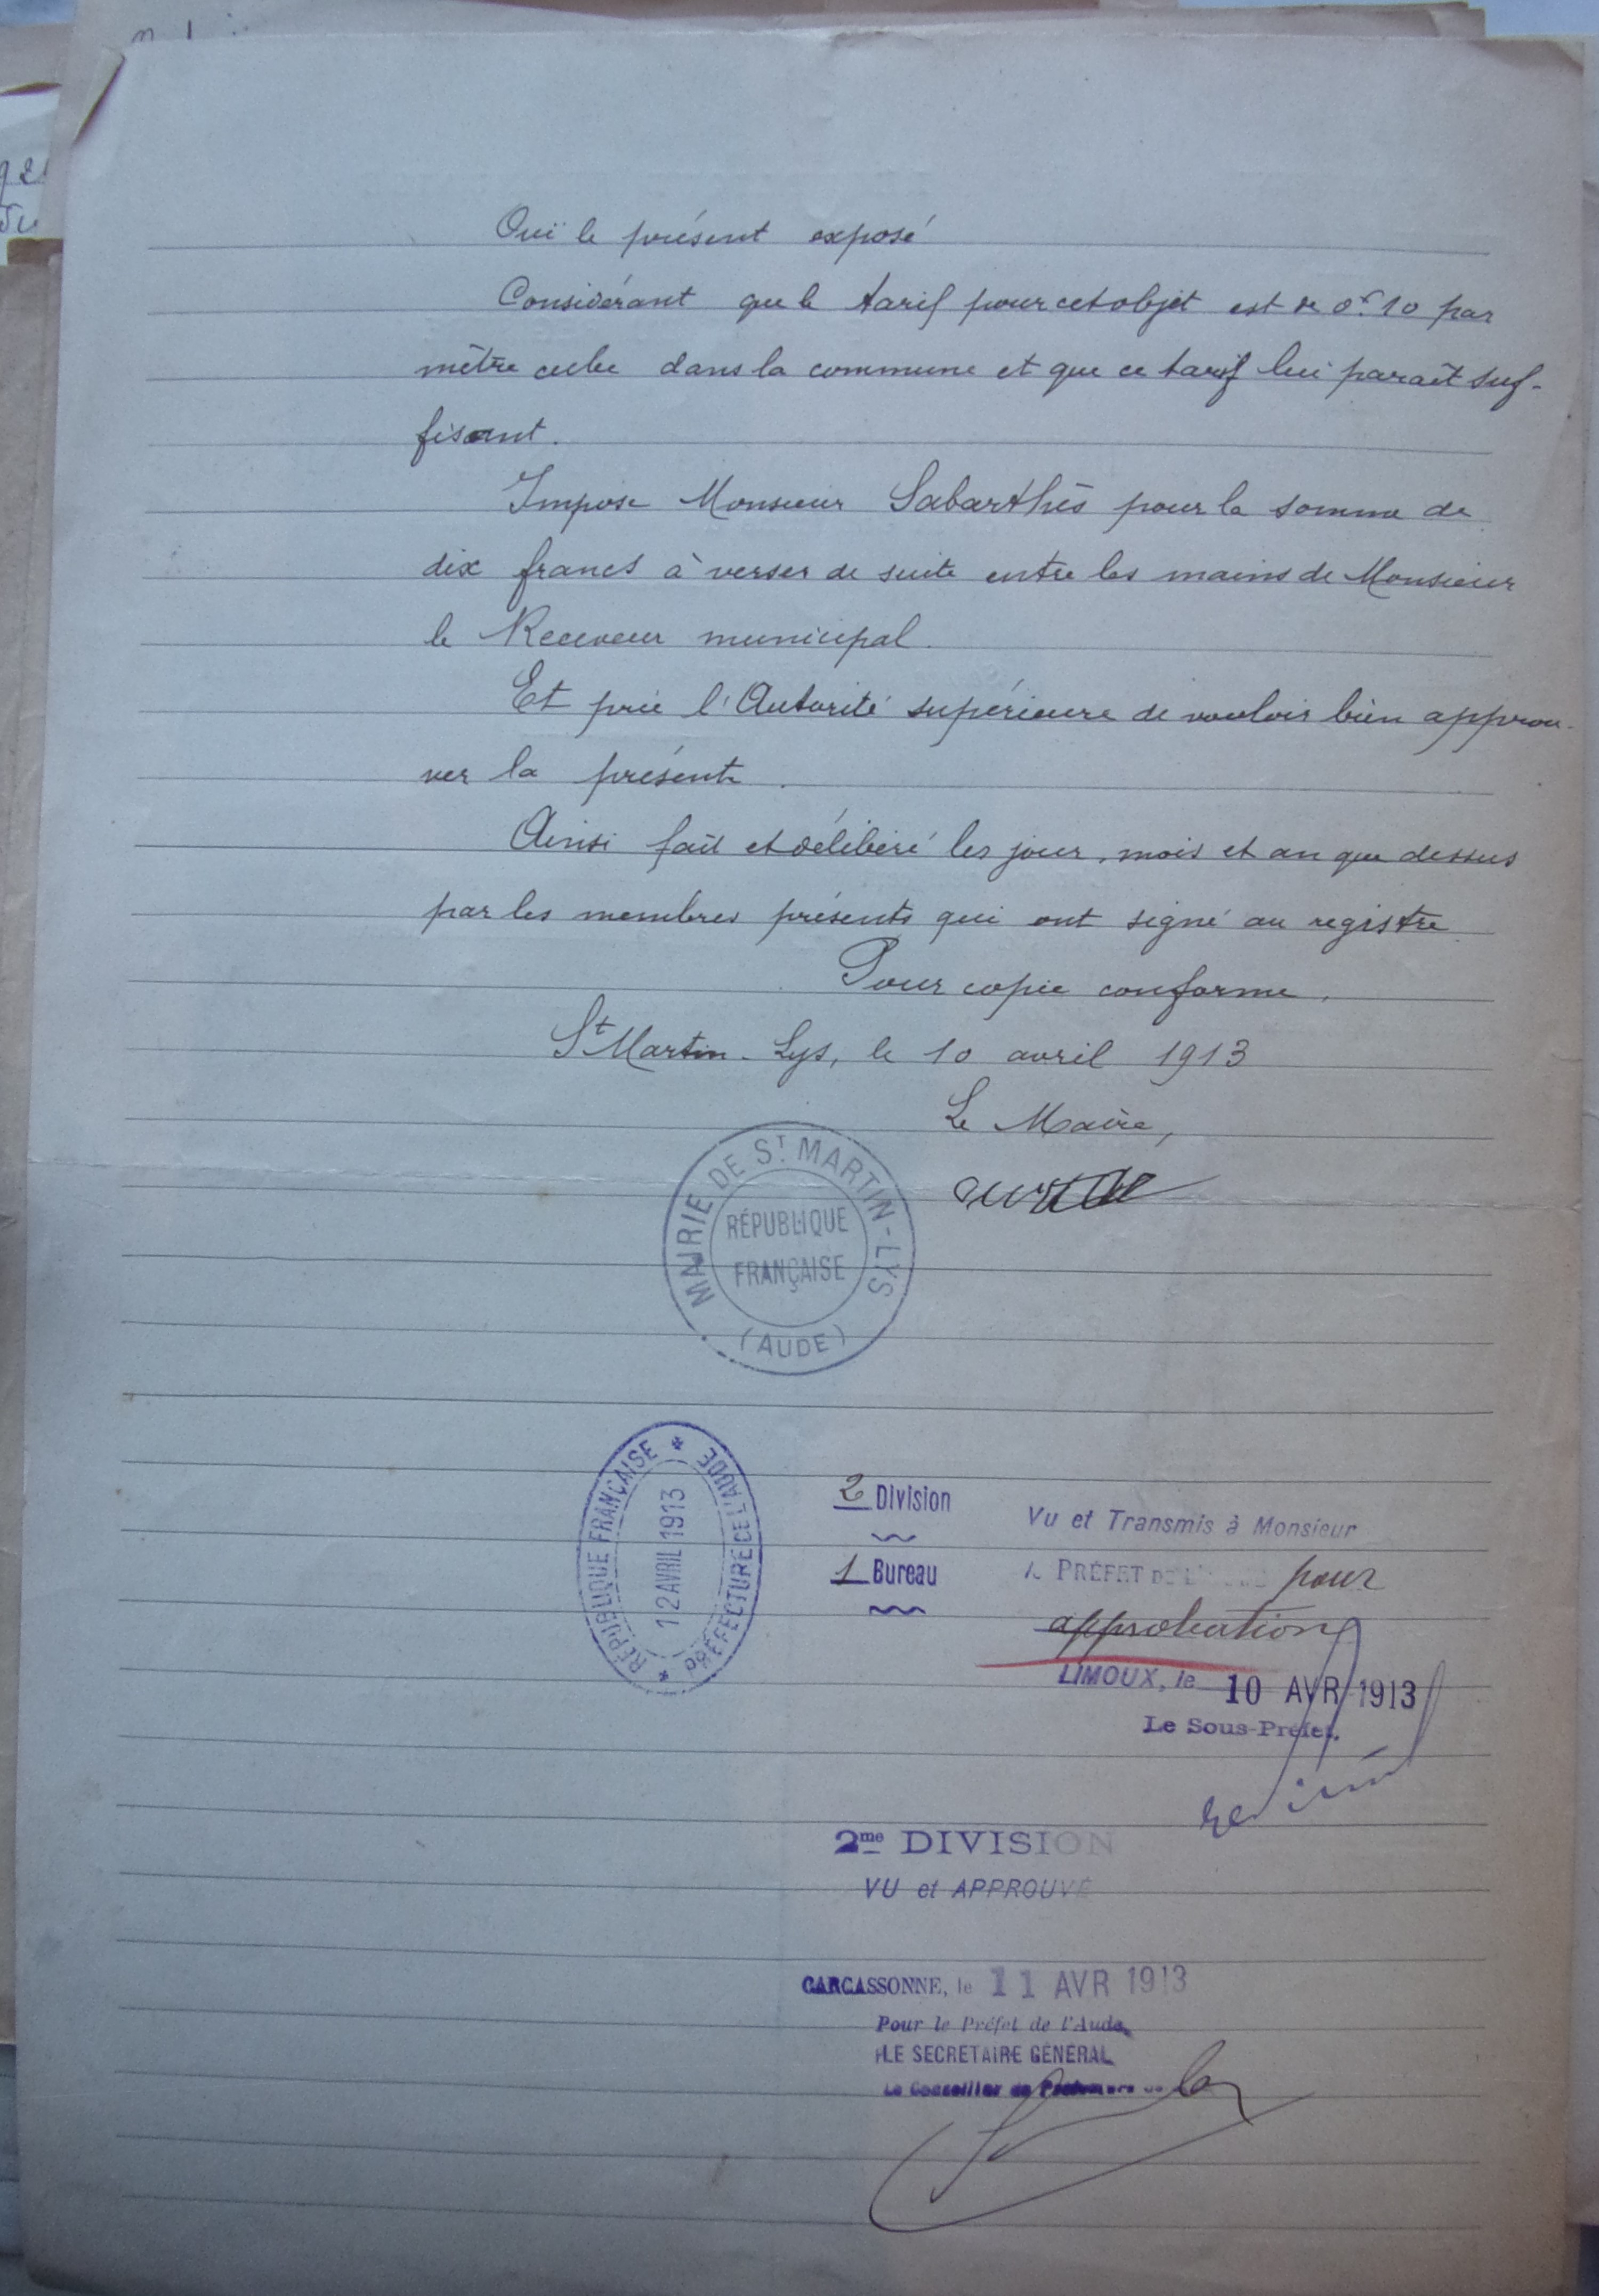 Ouï le présent exposé
Considérant que le tarif pour cet objet est de 0f.10 par
mètre cube dans la commune et que ce tarif lui paraît suf-
fisant.
Impose Monsieur Sabarthès pour la somme de
dix francs à verser de suite entre les mains de Monsieur
le Receveur municipal.
Et prie l'Autorité supérieure de vouloir bien approu-
ver la présente.
Ainsi fait et délibéré les jour, mois et an que dessus
par les membres présents qui ont signé au registre
Pour copie conforme,
St Martin-Lys, le 10 avril 1913
Le Maire,
MAIRIE DE ST MARTIN-LYS
RÉPUBLIQUE
FRANÇAISE
(AUDE)
RÉPUBLIQUE FRANÇAISE
12 AVRIL 1913
PRÉFECTURE DE L'AUDE
2 Division
1 Bureau
Vu et Transmis à Monsieur
PRÉFET DE L' pour
approbation
LIMOUX, le 10 AVR 1913
Le Sous-Préfet.
2me DIVISION
VU et APPROUVÉ
CARCASSONNE, le 11 AVR 1913
Pour le Préfet de l'Aude,
LE SECRÉTAIRE GÉNÉRAL
Le Conseiller de Préfecture